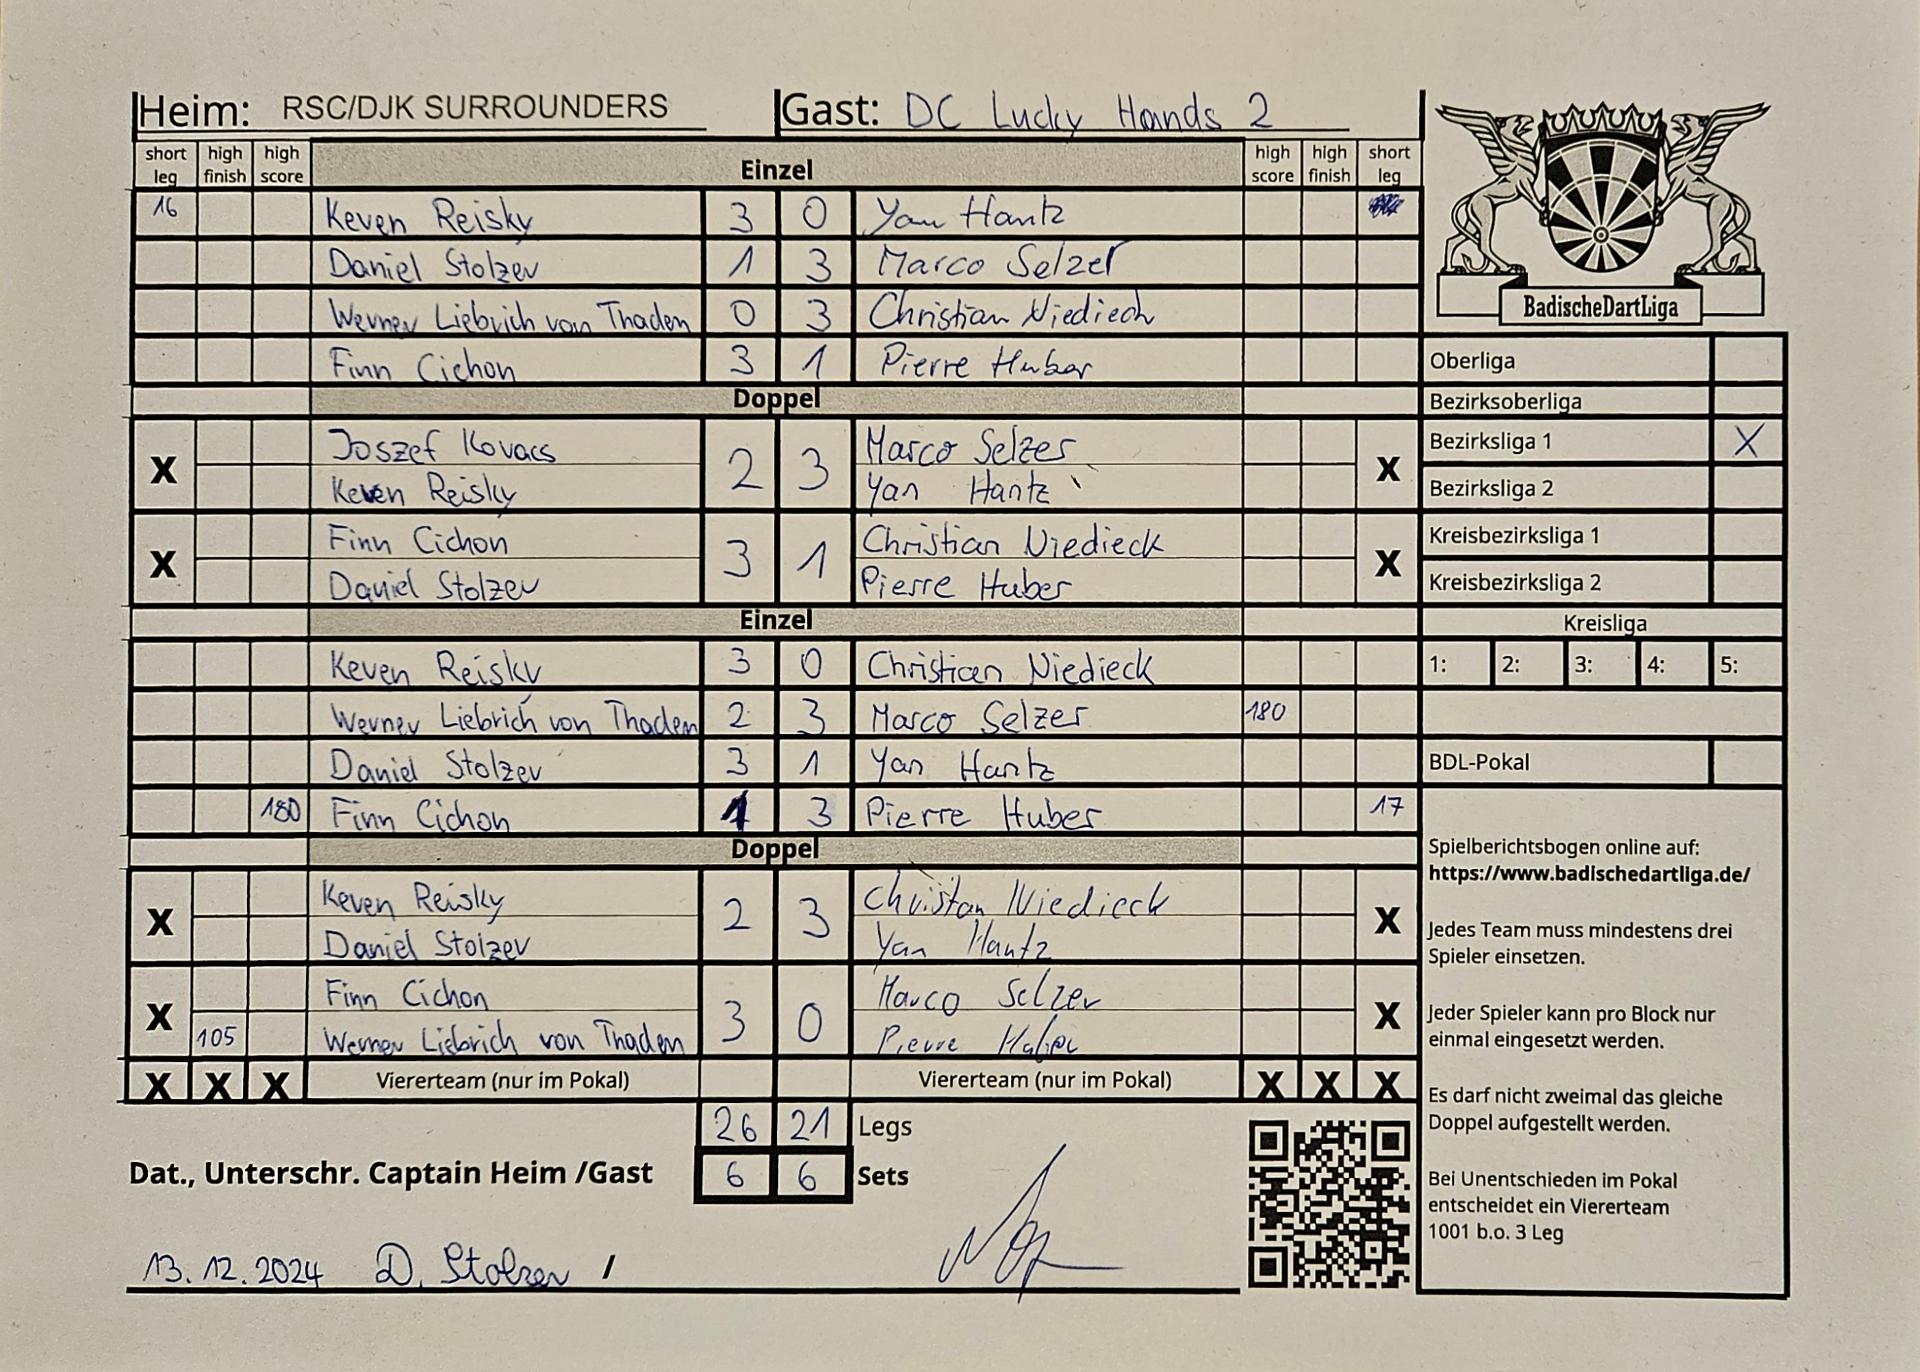 Heim: RSC/DJK SURROUNDERS Gast: DC Lucky Hands 2
short leg high finish high score Einzel high score high finish short leg
16 Keven Reisky 3 0 Yan Hantz
Daniel Stolzer 1 3 Marco Selzer
Werner Liebrich von Thaden 0 3 Christian Niedieck
Finn Cichon 3 1 Pierre Huber
Doppel
X Joszef Kovacs 2 3 Marco Selzer X
Keven Reisky Yan Hantz
X Finn Cichon 3 1 Christian Niedieck X
Daniel Stolzer Pierre Huber
Einzel
Keven Reisky 3 0 Christian Niedieck
Werner Liebrich von Thaden 2 3 Marco Selzer 180
Daniel Stolzer 3 1 Yan Hantz
180 Finn Cichon 1 3 Pierre Huber 17
Doppel
X Keven Reisky 2 3 Christan Niedieck X
Daniel Stolzer Yan Hantz
X Finn Cichon 3 0 Marco Selzer X
105 Werner Liebrich von Thaden Pierre Huber
X X X Viererteam (nur im Pokal) Viererteam (nur im Pokal) X X X
26 21 Legs
Dat., Unterschr. Captain Heim /Gast 6 6 Sets
13.12.2024 D. Stolzer /
BadischeDartLiga
Oberliga
Bezirksoberliga
Bezirksliga 1 X
Bezirksliga 2
Kreisbezirksliga 1
Kreisbezirksliga 2
Kreisliga
1: 2: 3: 4: 5:
BDL-Pokal
Spielberichtsbogen online auf:
https://www.badischedartliga.de/
Jedes Team muss mindestens drei
Spieler einsetzen.
Jeder Spieler kann pro Block nur
einmal eingesetzt werden.
Es darf nicht zweimal das gleiche
Doppel aufgestellt werden.
Bei Unentschieden im Pokal
entscheidet ein Viererteam
1001 b.o. 3 Leg